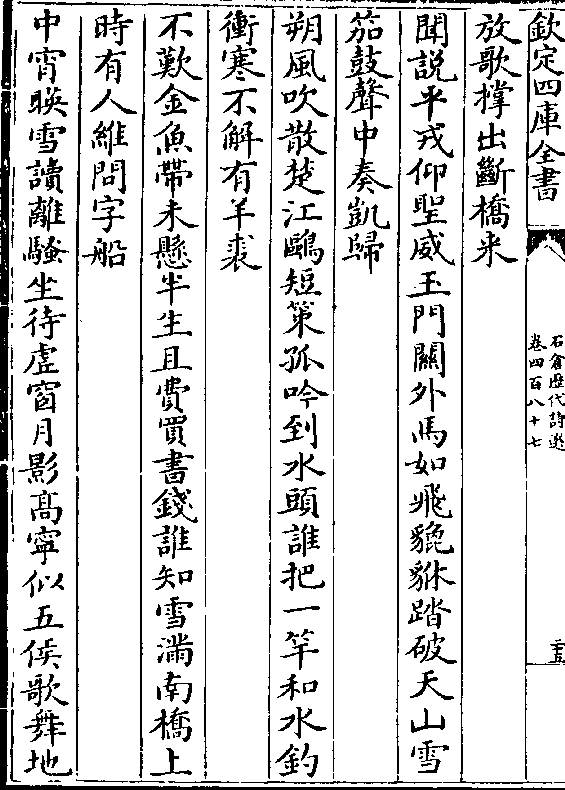 欽定四庫全書
石倉歷代詩選
卷四百八十七
二五
放歌撐出斷橋来
聞説平戎仰聖威玉門關外馬如飛貔貅踏破天山雪
笳鼓聲中奏凱歸
朔風吹散楚江鷗短策孤吟到水頭誰把一竿和水釣
衝寒不解有羊裘
不歎金魚帶未懸半生且費買書錢誰知雪滿南橋上
時有人維問字船
中宵暎雪讀離騷坐待虚窗月影髙寧似五侯歌舞地